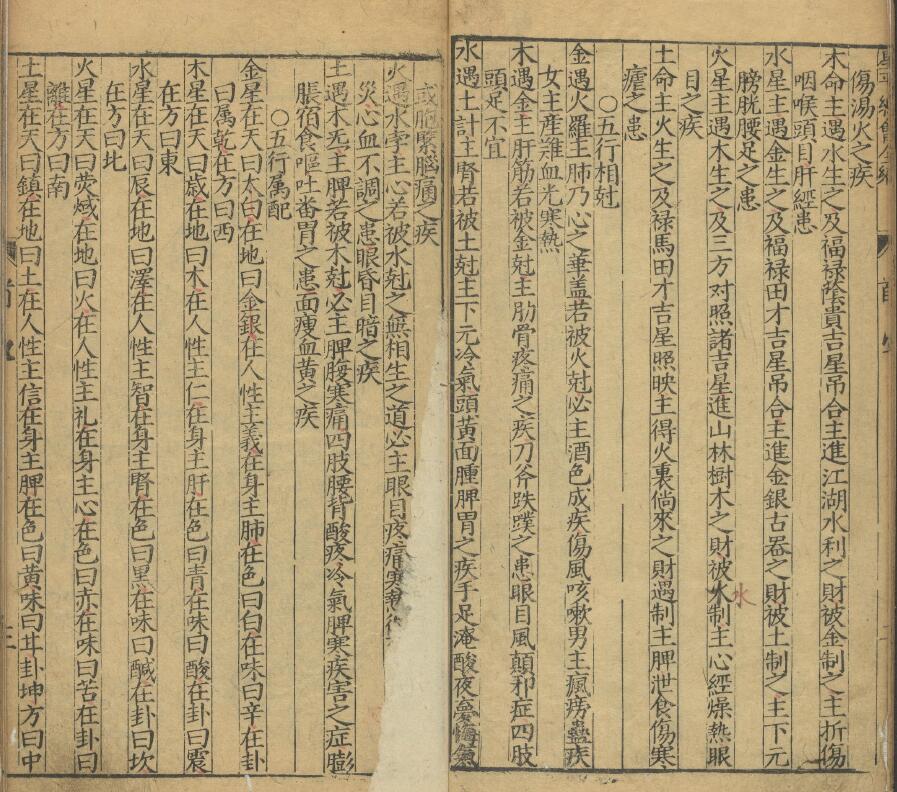 木命主遇水生之及福禄蔭貴吉星吊合主進江湖水利之財被金制之主折傷
傷湯火之疾
咽喉頭目肝經患
水星主遇金生之及福禄田才吉星吊合主進金銀古器之財被土制之主下元
膀胱腰足之患
火星主遇木生之及三方対照諸吉星進山林樹木之財被水制主心經燥熱眼
水
目之疾
土命主火生之及禄馬田才吉星照映主得火裏倘來之財遇制主脾泄食傷寒
瘧之患
〇五行相尅
金遇火羅主肺乃心之華蓋若被火尅必主酒色成疾傷風咳嗽男主瘋癆蠱疾
女主産難血光寒熱
木遇金主肝筋若被金尅主肋骨疼痛之疾刀斧跌蹼之患眼目風顛邪症四肢
頭足不宜
水遇土計主腎若被土尅主下元冷氣頭黄面腫脾胃之疾手足淹酸夜夢
腦痛之疾
火遇水孛主心若被水尅之無相生之道必主眼目疼痛寒
災心血不調之患眼昏目暗之疾
土遇木炁主脾若被木尅必主脾腹寒痛四肢腰背酸疼冷氣脾寒疾害之症膨
脹宿食嘔吐畨胃之患面瘦血黄之疾
〇五行属配
金星在天曰太白在地曰金銀在人性主義在身主肺在色曰白在味曰辛在卦
曰属乾在方曰西
木星在天曰歳在地曰木在人性主仁在身主肝在色曰青在味曰酸在卦曰震
在方曰東
水星在天曰辰在地曰澤在人性主智在身主腎在色曰黒在味曰醎在卦曰坎
在方曰北
火星在天曰熒惑在地曰火在人性主礼在身主心在色曰赤在味曰苦在卦曰
離在方曰南
土星在天曰鎮在地曰土在人性主信在身主脾在色曰黄味曰甘卦坤方曰中